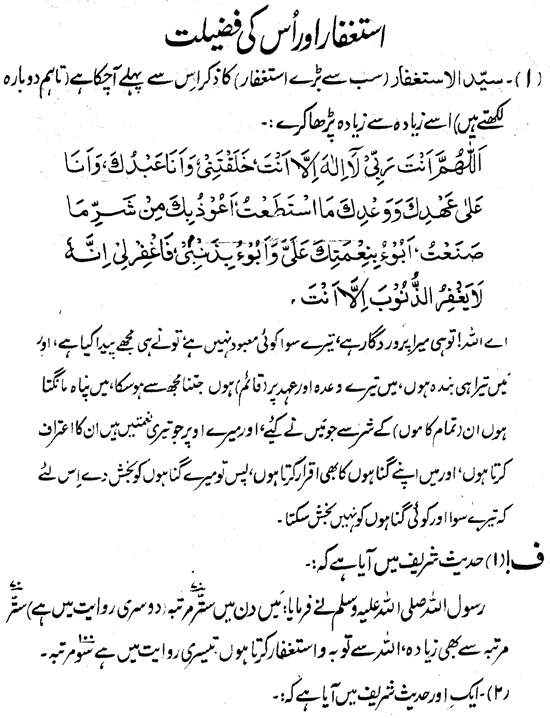 استغفار اور اُس کی فضیلت
(۱)۔ سیّد الاستغفار (سب سے بڑے استغفار) کا ذکر اس سے پہلے آچکا ہے (تاہم دوبارہ
لکھتے ہیں) اسے زیادہ سے زیادہ پڑھا کرے :۔
اَللّٰهُمَّ اَنْتَ رَبِّیْ لَآ اِلٰهَ اِلَّا اَنْتَ، خَلَقْتَنِیْ وَاَنَا عَبْدُكَ، وَاَنَا
عَلٰی عَهْدِكَ وَوَعْدِكَ مَا اسْتَطَعْتُ، اَعُوْذُ بِكَ مِنْ شَرِّ مَا
صَنَعْتُ، اَبُوْءُ بِنِعْمَتِكَ عَلَیَّ وَاَبُوْءُ بِذَنْبِیْ، فَاغْفِرْ لِیْ اِنَّهٗ
لَا یَغْفِرُ الذُّنُوْبَ اِلَّا اَنْتَ ،
اے اللہ! تو ہی میرا پروردگار ہے، تیرے سوا کوئی معبود نہیں ہے، تو نے ہی مجھے پیدا کیا ہے، اور
میں تیرا ہی بندہ ہوں، میں تیرے وعدہ اور عہد پر (قائم) ہوں جتنا مجھ سے ہوسکا، میں پناہ مانگتا
ہوں ان (تمام کاموں) کے شر سے جو میں نے کیے، اور میرے اوپر جو تیری نعمتیں ہیں ان کا اعتراف
کرتا ہوں، اور میں اپنے گناہوں کا بھی اقرار کرتا ہوں، پس تو میرے گناہوں کو بخش دے اس لئے
کہ تیرے سوا اور کوئی گناہوں کو نہیں بخش سکتا۔
ف! (۱) حدیث شریف میں آیا ہے کہ :۔
رسول اللہ صلی اللہ علیہ وسلم نے فرمایا: میں دن میں ستّر ۷۰ مرتبہ (دوسری روایت میں ہے) ستّر ۷۰
مرتبہ سے بھی زیادہ، اللہ سے توبہ و استغفار کرتا ہوں تیسری روایت میں ہے سو ۱۰۰ مرتبہ۔
(۲)۔ ایک اور حدیث شریف میں آیا ہے کہ :۔